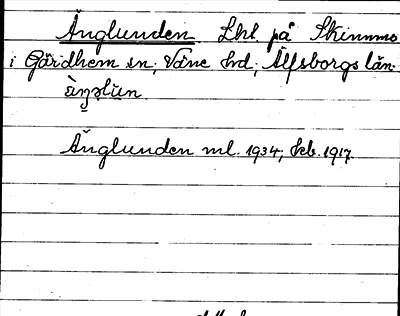 Änglunden Lhl. på Skinnmo
i Gärdhem sn; Väne hd; Älfsborgs län.
Änglunden ml. 1934; hkb. 1917.